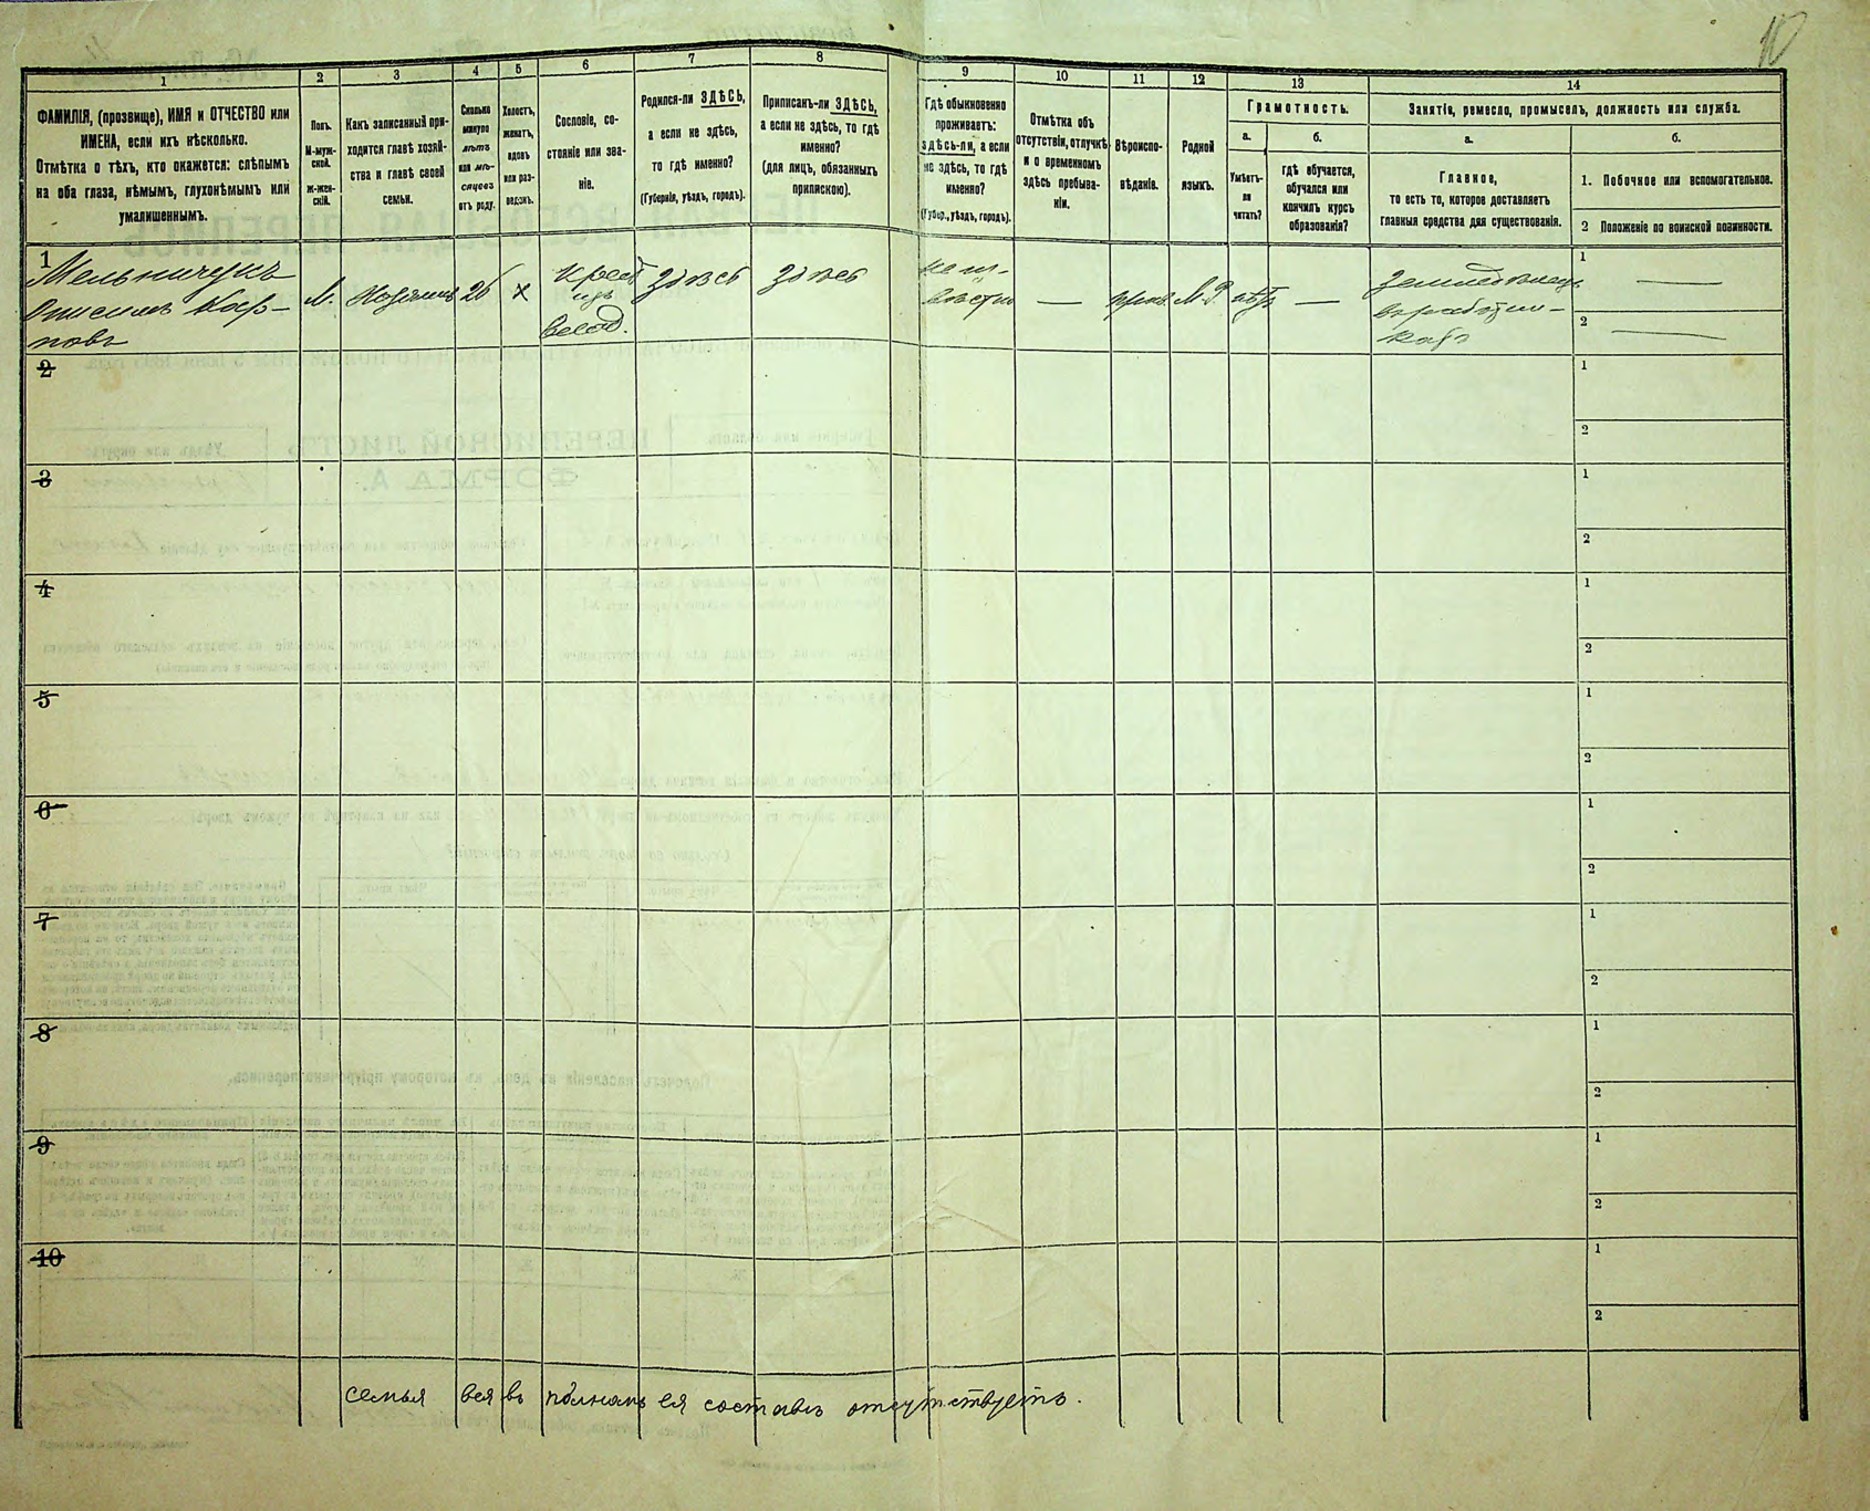 10
1
2
3
4
5
6
7
8
9
10
11
12
13
14
ФАМИЛІЯ, (прозвище), ИМЯ и ОТЧЕСТВО или
ИМЕНА, если ихъ нѣсколько.
Отмѣтка о тѣхъ, кто окажется: слѣпымъ
на оба глаза, нѣмымъ, глухонѣмымъ или
умалишеннымъ.
Полъ.
М-муж-
ской.
ж-жен-
скій.
Какъ записанный при-
ходится главѣ хозяй-
ства и главѣ своей
семьи.
Сколько
минуло
лѣтъ
или мѣ-
сяцевъ
отъ роду.
Холостъ,
женатъ,
вдовъ
или раз-
веденъ.
Сословіе, со-
стояніе или зва-
ніе.
Родился-ли ЗДѢСЬ,
а если не здѣсь,
то гдѣ именно?
(Губернія, уѣздъ, городъ).
Приписанъ-ли ЗДѢСЬ,
а если не здѣсь, то гдѣ
именно?
(для лицъ, обязанныхъ
припискою).
Гдѣ обыкновенно
проживаетъ:
здѣсь-ли, а если
не здѣсь, то гдѣ
именно?
(Губер., уѣздъ, городъ).
Отмѣтка объ
отсутствіи, отлучкѣ
и о временномъ
здѣсь пребыва-
ніи.
Вѣроиспо-
вѣданіе.
Родной
языкъ.
Грамотность.
а.
б.
Умѣетъ-
ли
читать?
гдѣ обучается,
обучался или
кончилъ курсъ
образованія?
Занятія, ремесло, промыселъ, должность или служба.
а.
б.
Главное,
то есть то, которое доставляетъ
главныя средства для существованія.
1. Побочное или вспомогательное.
2 Положеніе по воинской повинности.
1
Мельничукъ
Онисимъ Кар-
повъ
М.
Хозяинъ
26
х
Крест
изъ
владѣ.
здѣсь
здѣсь
неиз-
вѣстно
—
прав.
М. Р
нѣтъ
—
земледѣлецъ
въ работни-
кахъ
1
—
2
—
2
1
2
3
1
2
4
1
2
5
1
2
6
1
2
7
1
2
8
1
2
9
1
2
10
1
2
семья вся въ полномъ ея составѣ отсутствуетъ.